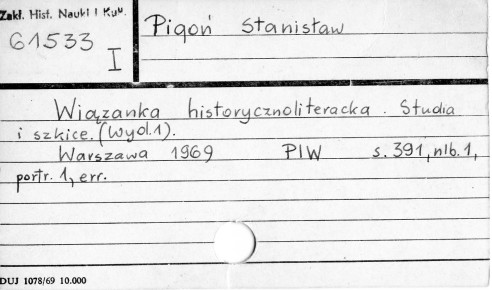 Zakł. Hist. Nauki i Kult.
61533
I
Pigoń Stanisław
Wiązanka historycznoliteracka. Studia
i szkice. (Wyd. 1).
Warszawa 1969 PIW s. 391, nlb. 1,
portr. 1, err.
DUJ 1078/69 10.000